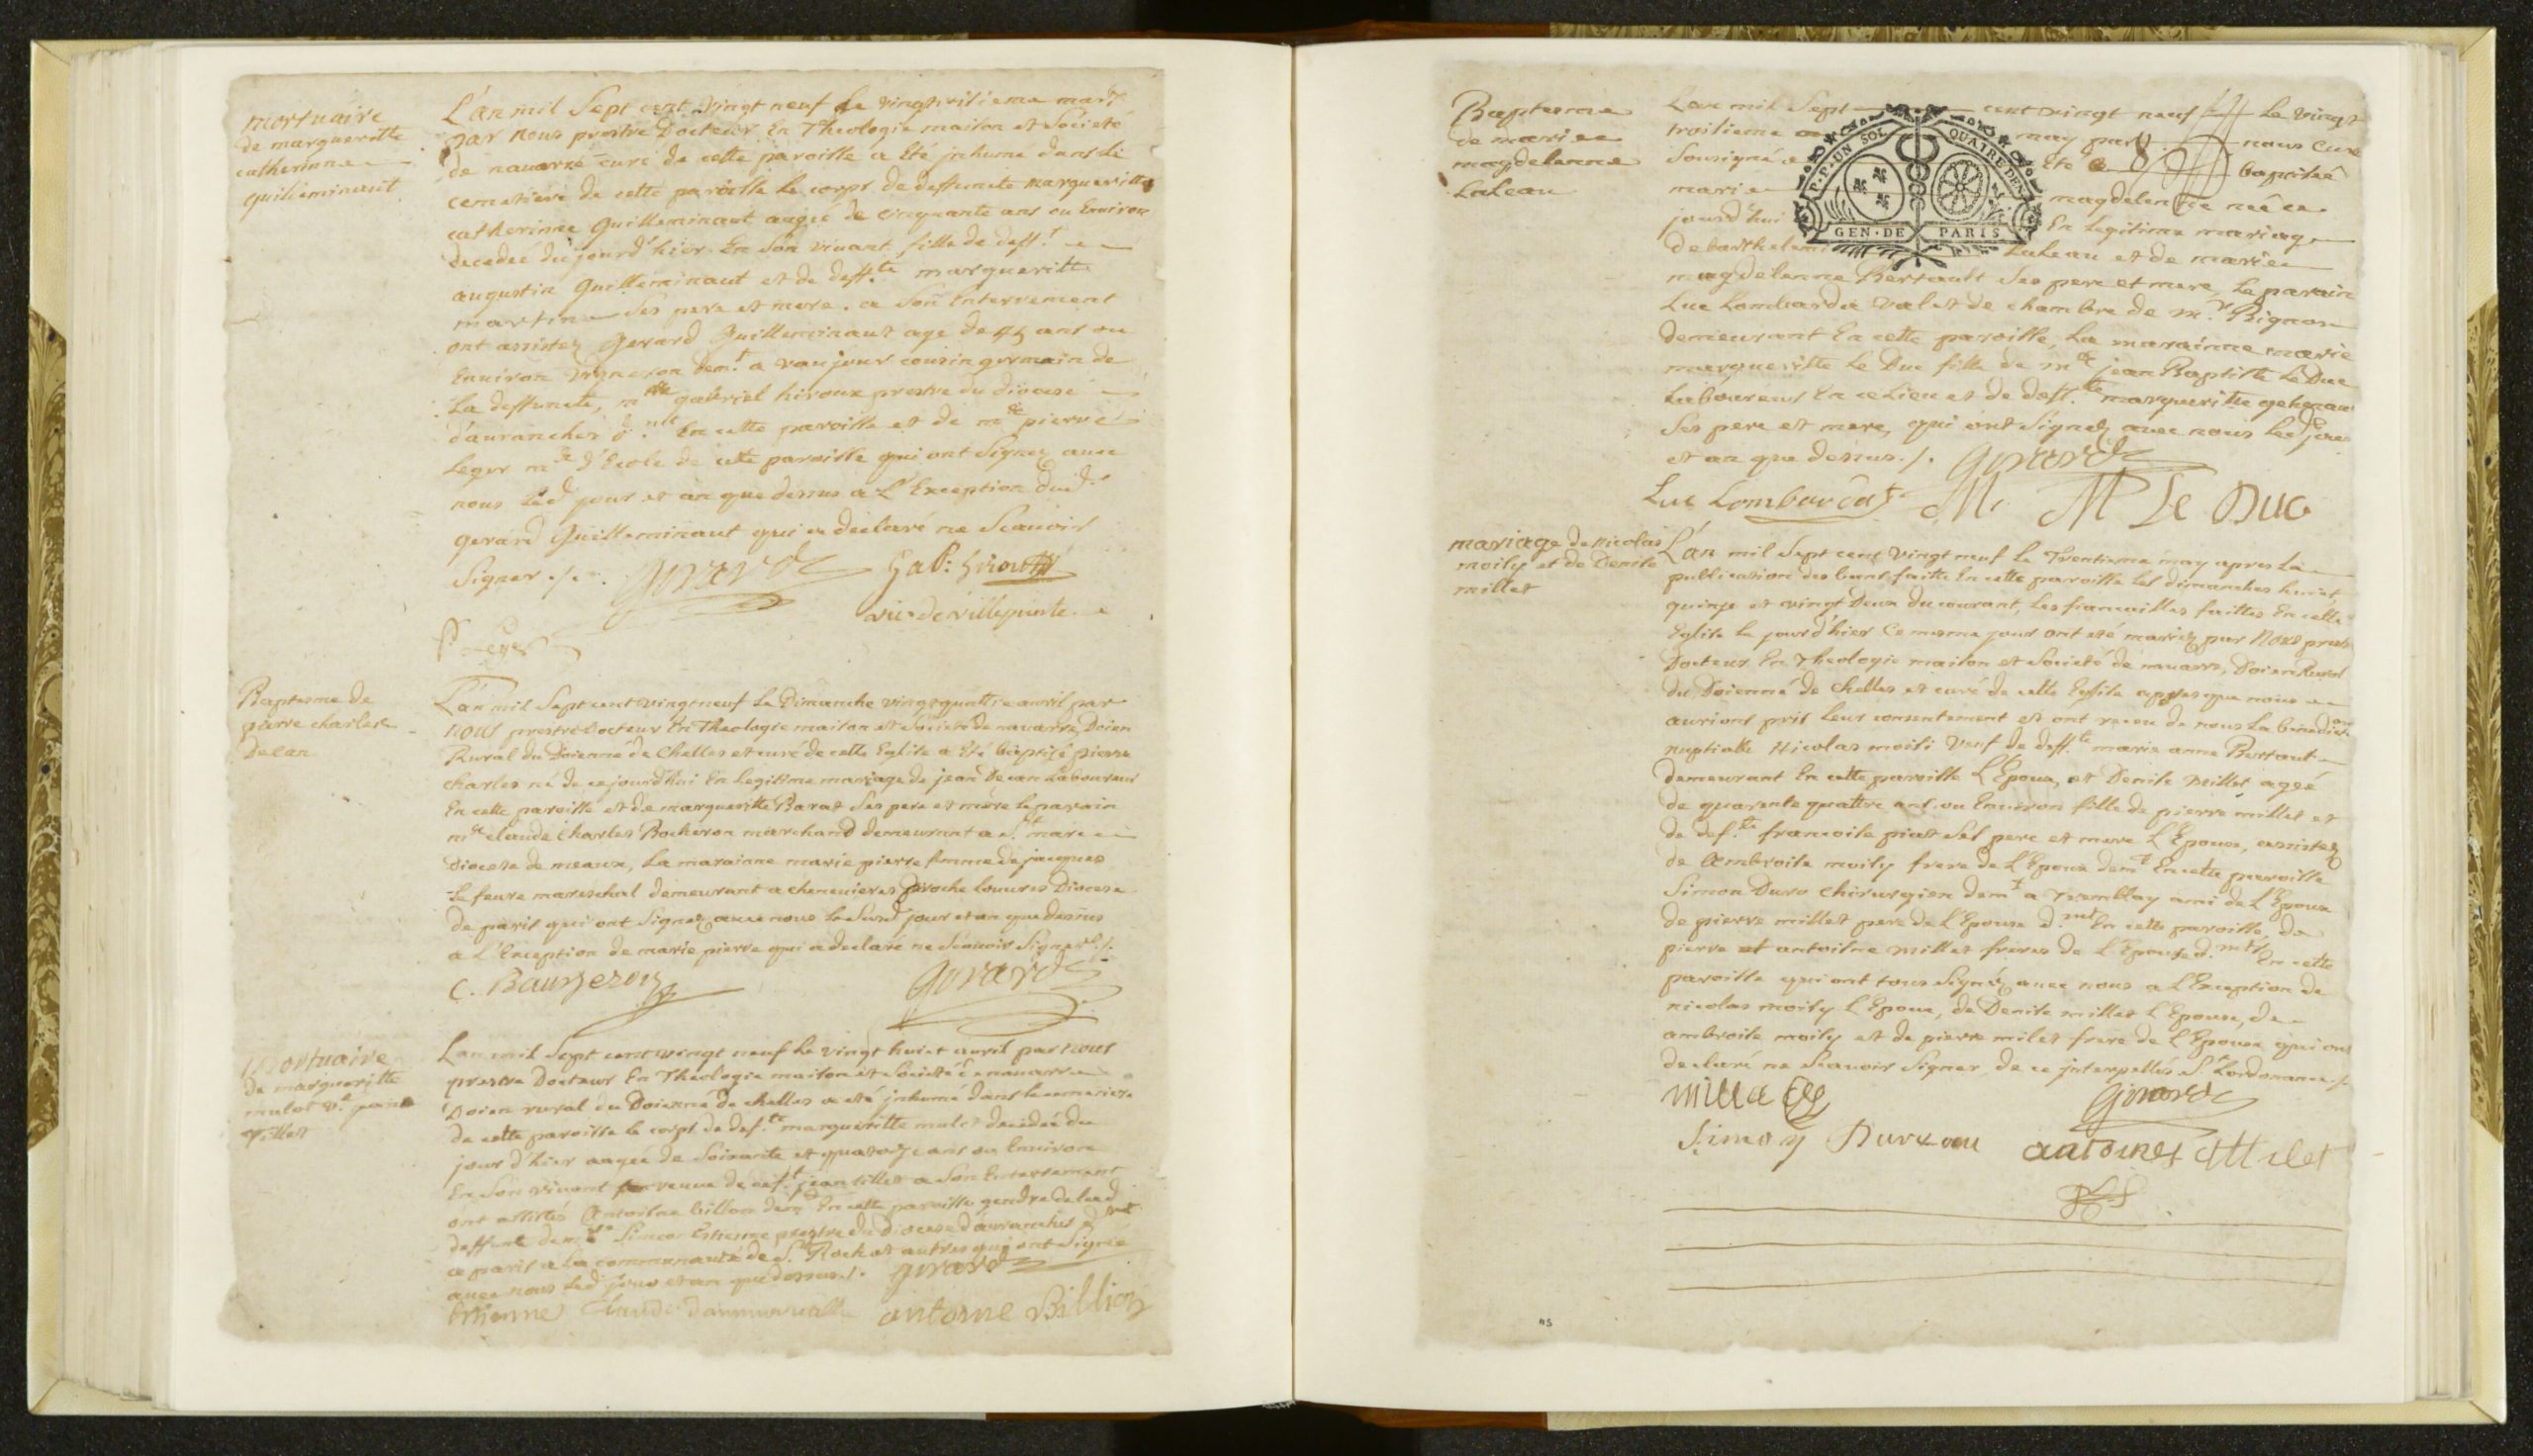 mortuaire
de margueritte
catherinne
guilleminaut
L'an mil Sept cent vingt neuf Le vingt
par nous prestre Docteur En Theologie maison et Societé
de navarre curé de cette paroisse a Eté inhumé dans le
cemetiere de cette paroisse le corps de deffuncte margueritte
catherinne Guilleminaut agee de cinquante ans ou Environ
decedée du jourd'hier En Son vivant fille de deff.t
augustin Guilleminaut et de deff.te margueritte
martin Ses pere et mere. a Son Enterrement
ont assistez Gerard Guilleminaut agé de 45 ans ou
Environ vigneron dem.t a vaujour cousin germain de
La deffuncte, gabriel hiroux prestre du diocese
d'auranches En cette paroisse et de pierre
Leger d'Ecole de cette paroisse qui ont Signez avec
nous led jour et an que dessus a L'Exception dud.
gerard Guilleminaut qui a declaré ne Scauoir
Signer ./. Gerard Gab: hiroux
vic. de villepinte
P. Leger
Baptesme de
pierre charles
decan
L'an mil Sept cent vingt neuf Le Dimanche vingt quattre auril par
nous prestre Docteur En Theologie maison et Societé de navarre, Doien
Rural du Doienné de Chelles et curé de cette Eglise a Eté baptisé pierre
charles né de ce jourd'hui En Legitime mariage de jean Decan Laboureur
En cette paroisse et de margueritte Barat Ses pere et mere le parain
claude Charles Bocheron marchand demeurant a S.t
Diocese de meaux, La marainne marie pierre femme de jacques
Le feure mareschal demeurant a chenevieres proche Louvres Diocese
de paris qui ont Signez avec nous le Susd jour et an que dessus
a L'Exception de marie pierre qui a declaré ne Scauoir Signer ./.
C. Gerard
Mortuaire
de margueritte
mulot
L'an mil Sept cent vingt neuf Le vingt huict auril par nous
prestre Docteur En Theologie maison et Societé de navarre
Doien rural du Doienné de Chelles a eté inhumé dans le cemetiere
de cette paroisse le corps de def.te margueritte mulot decedée du
jour d'hier aagée de Soixante et quatorze ans ou Environ
En Son vivant veuve de def.t jean a Son Enterrement
ont assistés Antoine billon En cette paroisse gendre de lad
deffuncte Simeon Estienne prestre du Diocese d'auranches
a paris a La communauté de S.t Roch et autres qui ont Signé
avec nous led jour et an que dessus ./. Gerard
Estienne Claude antoine Billion
Baptesme
de marie
magdelenne
Luleau
L'an mil Sept cent vingt neuf Le vingt
troisieme may par nous Curé
Sousigné a Eté baptisée
marie magdelenne née ce
jourd'hui En Legitime mariage
de barthelemi Luleau et de marie
magdelenne Bertault Ses pere et mere, Le parain
Luc Lombarda valet de chambre de M.r Brignon
demeurant En cette paroisse, La marainne marie
margueritte Le Duc fille de jean Baptiste Le Duc
Laboureur En ce Lieu et de deff.te margueritte
Ses pere et mere, qui ont Signez avec nous led jour
et an que dessus ./. Gerard
Luc Lombarda M. M Le Duc
P.P. UN SOL QUATRE DEN
GEN. DE PARIS
mariage de Nicolas
moily et de Denise
millet
L'an mil Sept cent vingt neuf Le Trentieme may apres La
publication des bans faitte En cette paroisse les dimanches huict,
quinze et vingt Deux du courant, Les fiancailles faittes En cette
Eglise le jourd'hier Ce mesme jour ont eté mariez par Nous prestre
Docteur En Theologie maison et Societé de navarre, Doien Rural
du Doienné de Chelles et curé de cette Eglise apres que nous
aurions pris leur consentement et ont receu de nous La benediction
nuptialle Nicolas moili veuf de deff.te marie anne Bertaut
demeurant En cette paroisse L'Epoux, et Denise millet agée
de quarente quattre ans ou Environ fille de pierre millet et
de def.te francoise piat Ses pere et mere L'Epouse, assistez
de Ambroise moily frere de L'Epoux dem.t En cette paroisse
Simon Duro chirurgien dem.t a Tremblay ami de L'Epoux
de pierre millet pere de L'Epouse En cette paroisse, de
pierre et antoine millet freres de L'Epouse En cette
paroisse qui ont tous Signéz avec nous a L'Exception de
nicolas moily L'Epoux, de Denise millet L'Epouse, de
ambroise moily et de pierre milet frere de L'Epouse qui ont
declaré ne Scauoir Signer, de ce interpellés S.t Lordonance ./.
Gerard
Simon antoinet Milet